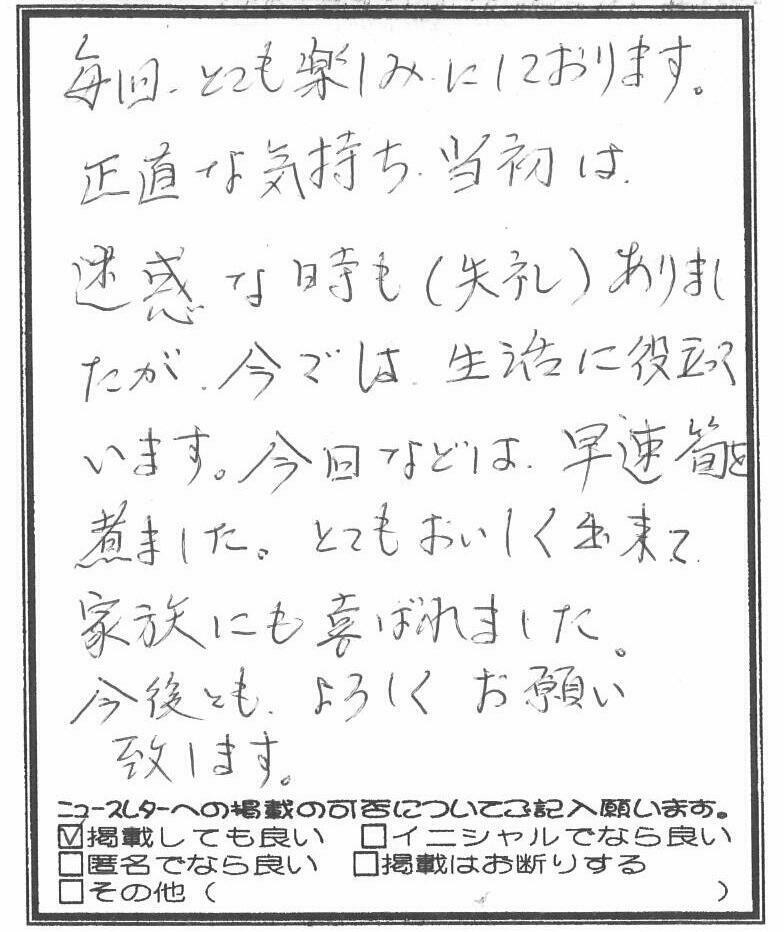 毎回、とても楽しみにしております。
正直な気持ち、当初は、
迷惑な時も(失礼)ありまし
たが、今では、生活に役立って
います。今回などは、早速筍を
煮ました。とてもおいしく出来て
家族にも喜ばれました。
今後とも、よろしくお願い
致します。
ニュースレターへの掲載の可否についてご記入願います。
☑掲載しても良い □イニシャルでなら良い
□匿名でなら良い □掲載はお断りする
□その他( )